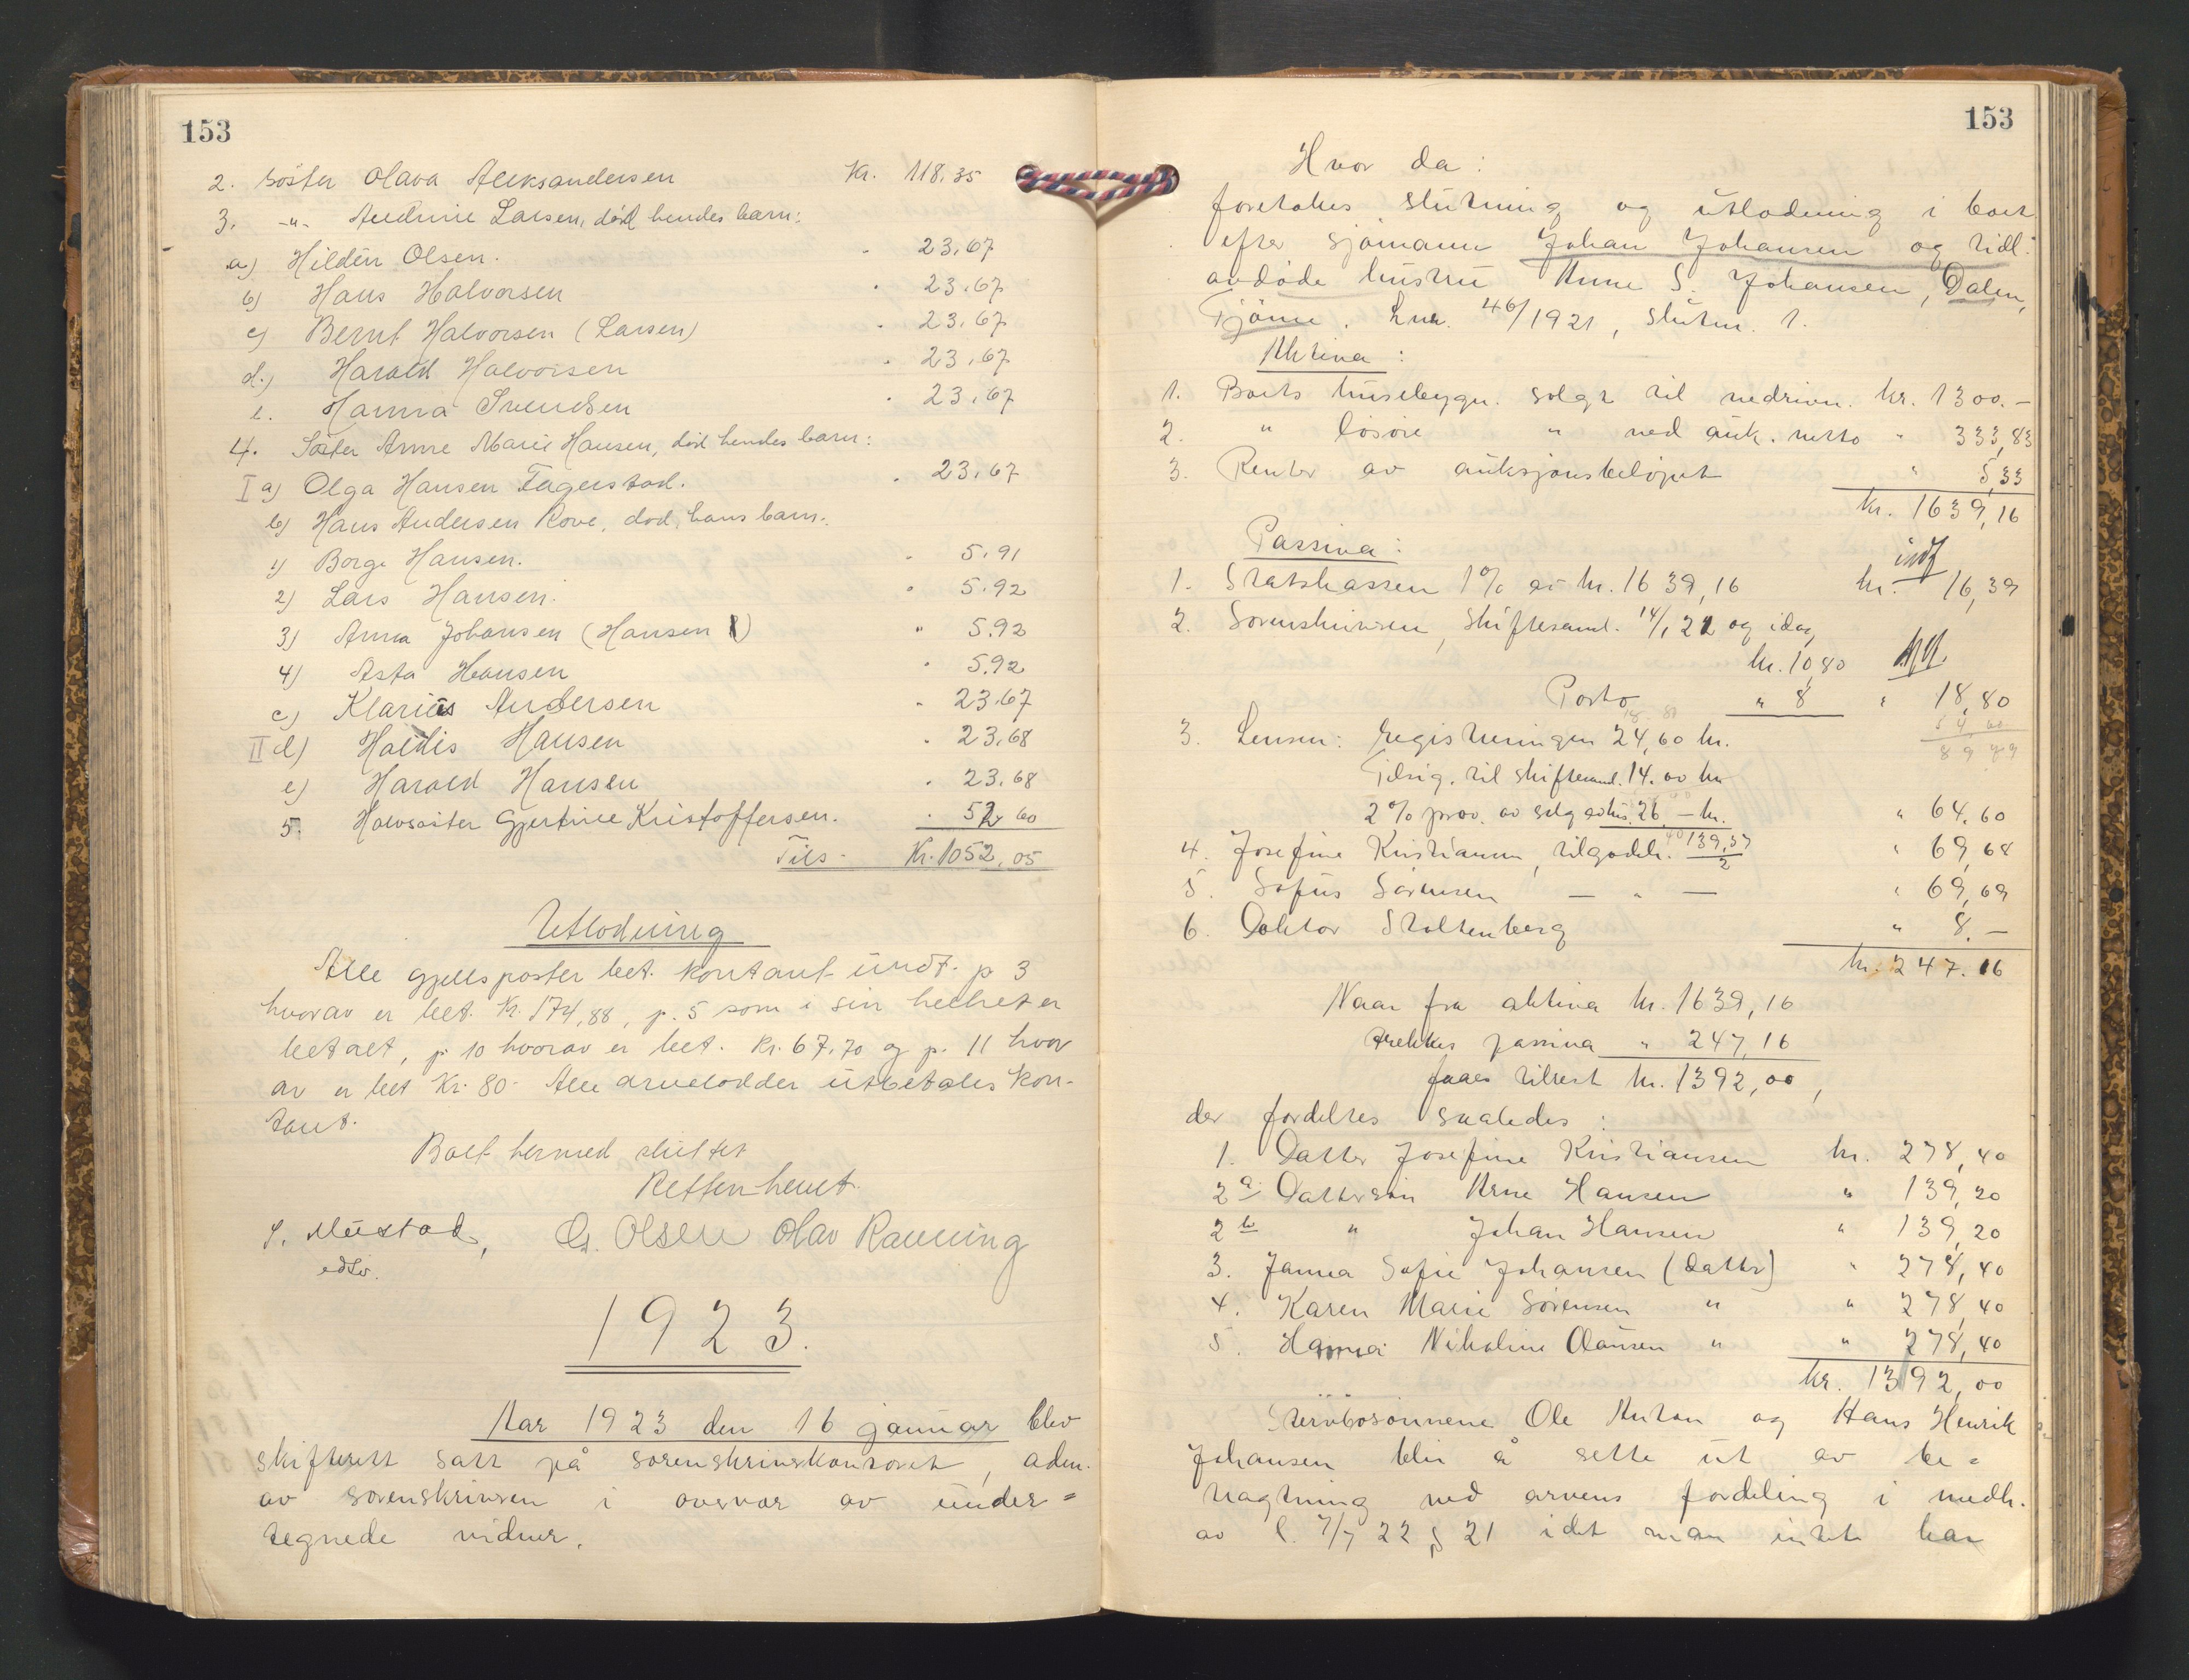 153
2. söster Olava Aleksandersen Kr. 118.35
3. -"- Andrine Larsen, død hendes barn:
a) Hilden Olsen. " 23.67
b) Hans Halvorsen " 23.67
c) Bernt Halvorsen (Larsen) " 23.67
d.) Harald Halvorsen " 23.67
e. Hanna Svendsen " 23.67
4. Søster Anne Marie Hansen, død hendes barn:
I a) Olga Hansen Fagerstad. " 23.67
b) Hans Andersen Rove, død, hans barn:
1) Borge Hansen. " 5.91
2) Lars Hansen. " 5.92
3) Anna Johansen (Hansen) " 5.92
4) Asta Hansen " 5.92
c) Klarius Andersen " 23.67
II d) Haldis Hansen " 23.68
e) Harald Hansen " 23.68
5. Halvsøster Gjertine Kristoffersen. " 52,60
Tils. Kr. 1052,05
Utlodning
Alle gjeldsposter bet. kontant undt. p 3
hvorav er bet. Kr. 174,88, p. 5 som i sin helhet er
betalt, p 10 hvorav er bet. Kr. 67.70 og p. 11 hvor
av er bet Kr. 80.- Alle arvelodder utbetales kon-
tant.
Boet hermed sluttet
Retten hevet.
S. Mustad, G. Olsen Olav Rauning
edsv.
1923.
Aar 1923 den 16 januar blev
skifterett satt på sorenskriverkontoret, adm.
av sorenskriveren i overvær av under=
tegnede vidner.
153
Hvor da:
foretokes slutning og utlodning i boet
efter sjømann Johan Johansen og tidl.
avdøde hustru Anne S. Johansen, Dalen,
Tjöme. Lnr. 46/1921, slutn. 1.
Aktiva:
1. Boets husebygn. solgt til nedrivn. kr. 1300.-
2. " løsøre " ved auk. netto " 333,83
3. Renter av auksjonsbeløpet " 5,33
kr. 1639,16
Passiva:
1. Statskassen 1% av kr. 1639,16 kr. 16,39
2. Sorenskriveren, skiftesaml. 14/1 22 og idag
kr. 10,80
Porto " 8 " 18,80
3. Lensm: registreringen 24,60 kr.
Tilsig. til skiftesaml. 14.00 kr
2% prov. av salg av hus. 26.- kr. " 64.60
4. Josefine Kristiansen, tilgodeh. 139,37/2 " 69,68
5. Sofus Sörensen — " — " 69,69
6. Doktor Stoltenberg " 8.-
kr. 247.16
Naar fra aktiva kr. 1639,16
trekkes passiva " 247,16
faaes tilrest kr. 1392,00,
der fordeltes saaledes:
1. Datter Josefine Kristiansen kr. 278,40
2 a. Dattersön Arne Hansen " 139,20
2 b " Johan Hansen " 139,20
3. Janna Sofie Johansen (datter) " 278,40
4. Karen Marie Sörensen " " 278,40
5. Hanna Nikoline Clausen " " 278,40
kr. 1392,00
Stervbosönnene Ole Anton og Hans Henrik
Johansen blir å sette ut av be=
tragtning ved arvens fordeling i medh.
av l. 7/7 22 § 21 idet man intet har